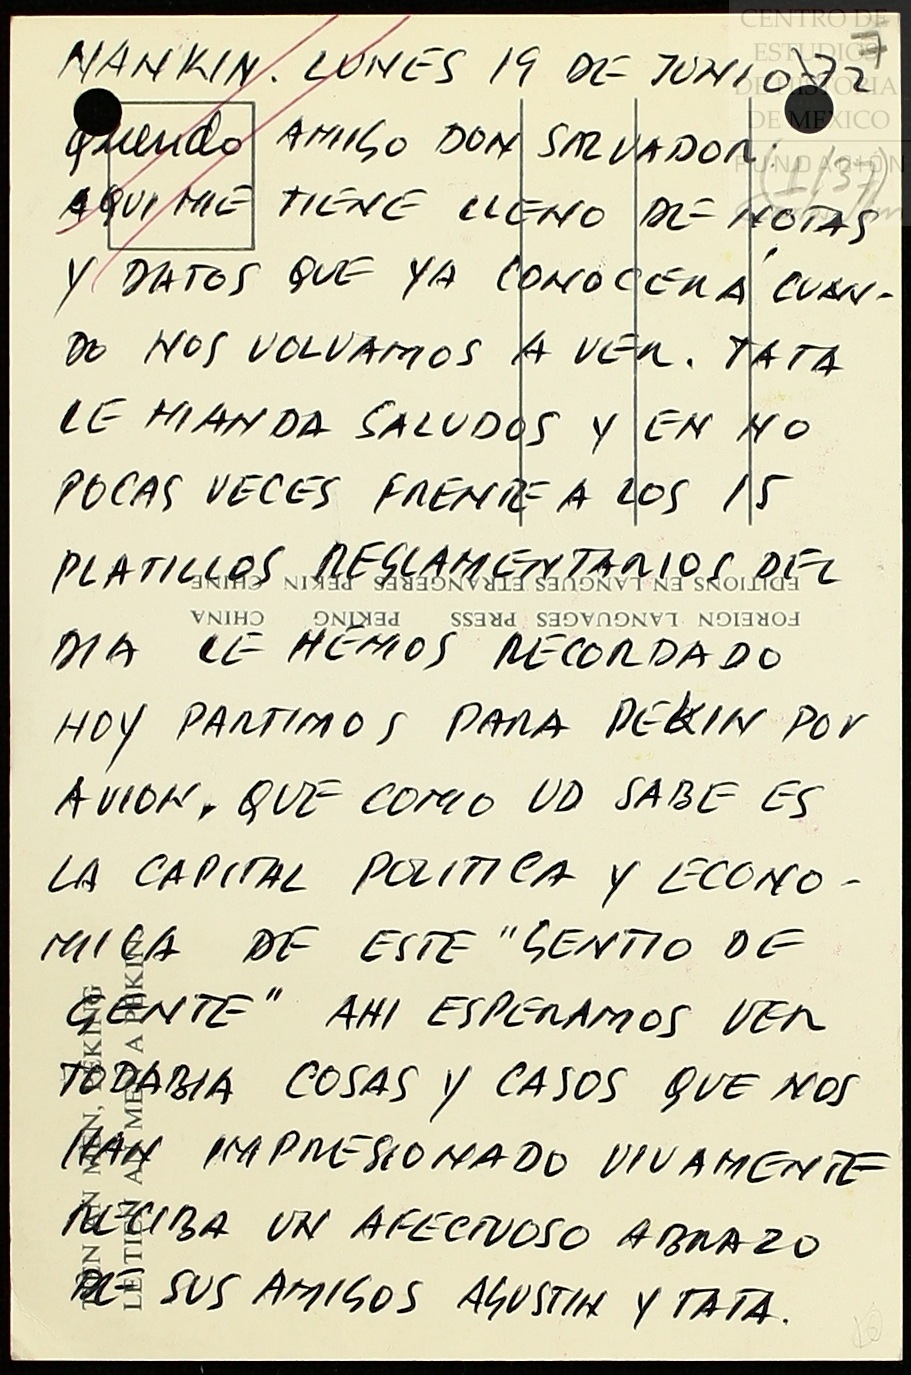 NANKIN. LUNES 19 DE JUNIO-72
Querido AMIGO DON SALVADOR:
AQUI ME TIENE LLENO DE NOTAS
Y DATOS QUE YA CONOCERÁ CUAN-
DO NOS VOLVAMOS A VER. TATA
LE MANDA SALUDOS Y EN NO
POCAS VECES FRENTE A LOS 15
PLATILLOS REGLAMENTARIOS DEL
DIA LE HEMOS RECORDADO
HOY PARTIMOS PARA PEKIN POR
AVION, QUE COMO UD SABE ES
LA CAPITAL POLITICA Y ECONO-
MICA DE ESTE "GENTIO DE
GENTE" AHI ESPERAMOS VER
TODABIA COSAS Y CASOS QUE NOS
HAN IMPRESIONADO VIVAMENTE
RECIBA UN AFECTUOSO ABRAZO
DE SUS AMIGOS AGUSTIN Y TATA.
CENTRO DE
ESTUDIOS
DE HISTORIA
DE MEXICO
FUNDACIÓN
(1/37)
EDITIONS EN LANGUES ETRANGERES PEKIN CHINE
FOREIGN LANGUAGES PRESS PEKING CHINA